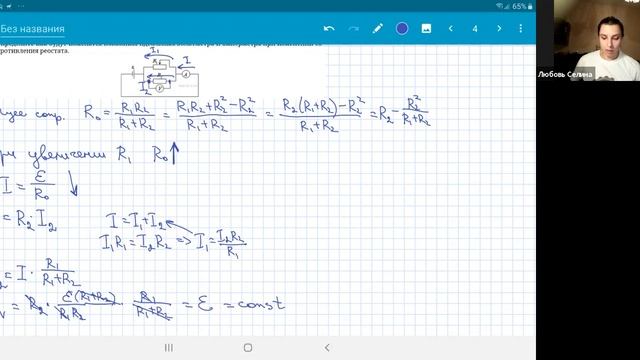 65%
Без названия
4
ротивления реостата.
I₁
R₁
I
I₂
Любовь Селина
сопр. R₀ = R₁R₂/(R₁+R₂) = (R₁R₂+R₂²−R₂²)/(R₁+R₂) = (R₂(R₁+R₂)−R₂²)/(R₁+R₂) = R₂ − R₂²/(R₁+R₂)
увеличении R₁ R₀↑
I = ℰ/R₀ ↓
= R₂·I₂
I = I₁+I₂
I₁R₁ = I₂R₂ => I₁ = I₂R₂/R₁
₂ = I · R₁/(R₁+R₂)
V = R₂ · ℰ(R₁+R₂)/R₁R₂ · R₁/(R₁+R₂) = ℰ = const